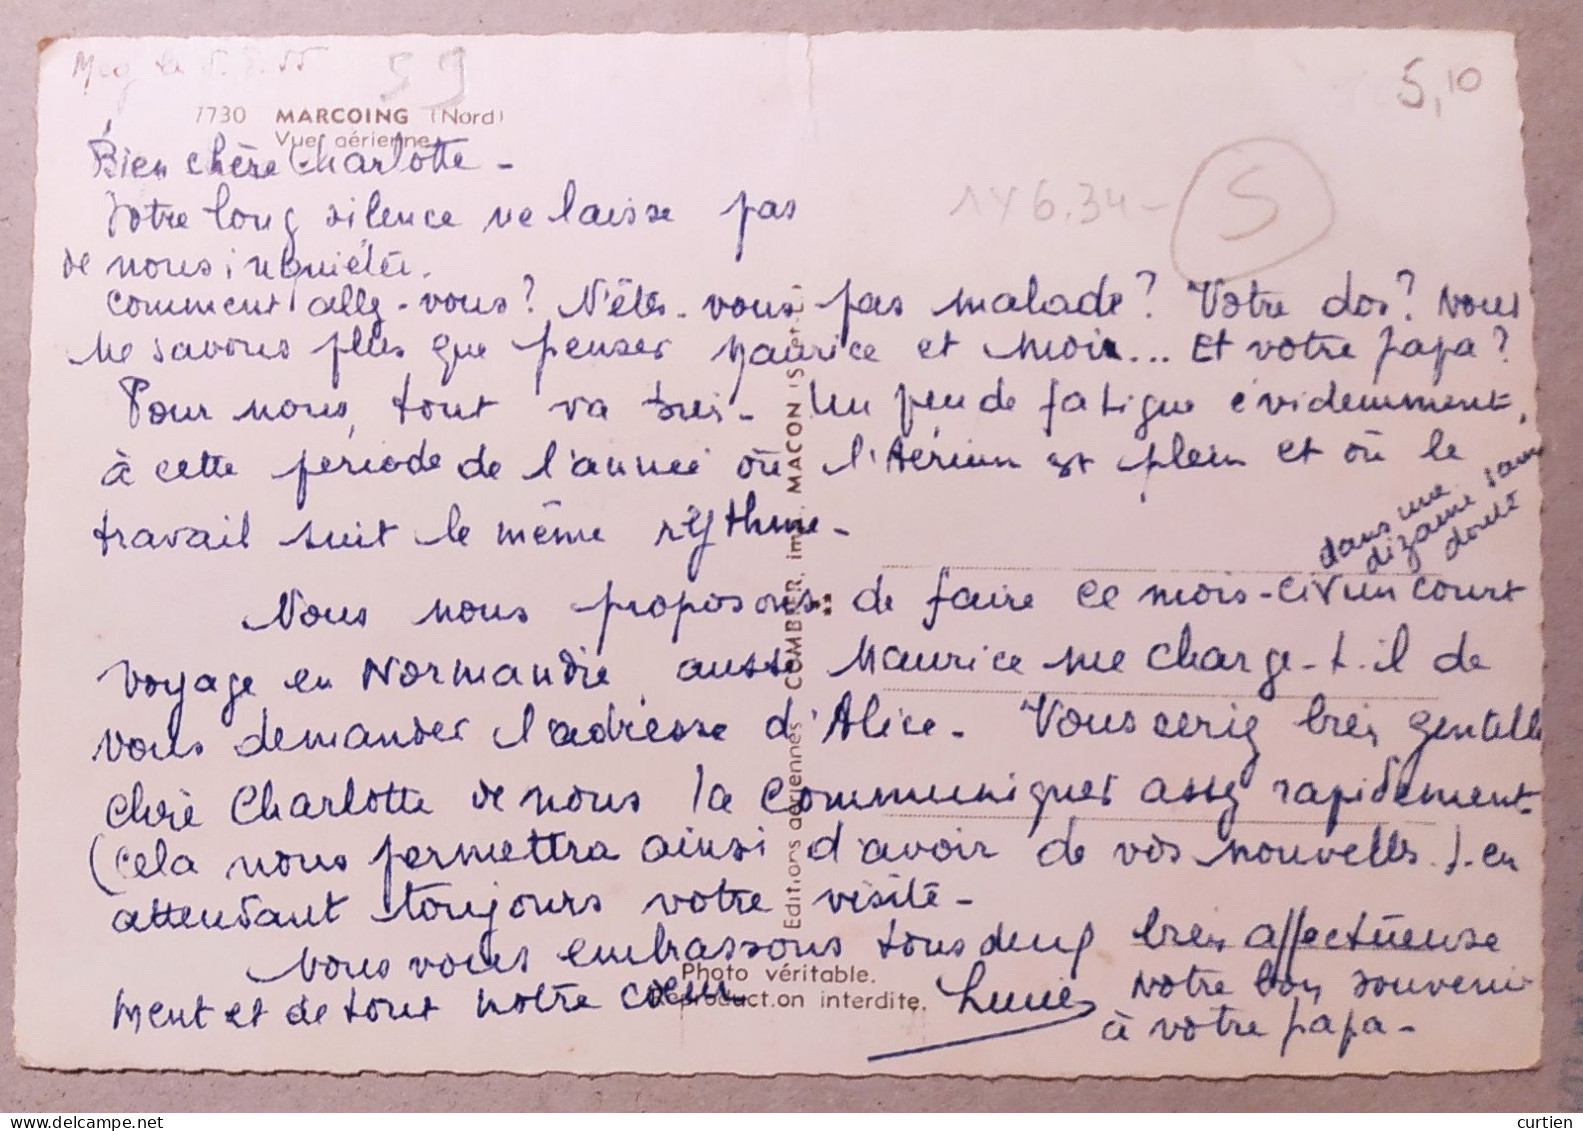 59
5,10
7730 MARCOING (Nord)
Vue aérienne
Bien chère Charlotte -
Votre long silence ne laisse pas
de nous inquiéter.
Comment allez-vous? N'êtes-vous pas malade? Votre dos? Nous
ne savons plus que penser Maurice et moi... Et votre papa?
Pour nous, tout va bien - Un peu de fatigue évidemment,
à cette période de l'année où l'Aérium est plein et où le
travail suit le même rythme -
dans une
dizaine sans
doute
Nous nous proposons de faire ce mois-ci un court
voyage en Normandie, aussi Maurice me charge-t-il de
vous demander l'adresse d'Alice - Vous seriez très gentille
chère Charlotte de nous la communiquer assez rapidement
(cela nous permettra ainsi d'avoir de vos nouvelles.) en
attendant toujours votre visite -
Nous vous embrassons tous deux très affectueuse
ment et de tout notre coeur
Notre bon souvenir
à votre papa -
Photo véritable.
Reproduction interdite.
Editions aériennes COMBIER, imp. MACON (S-et-L)
S
curtien